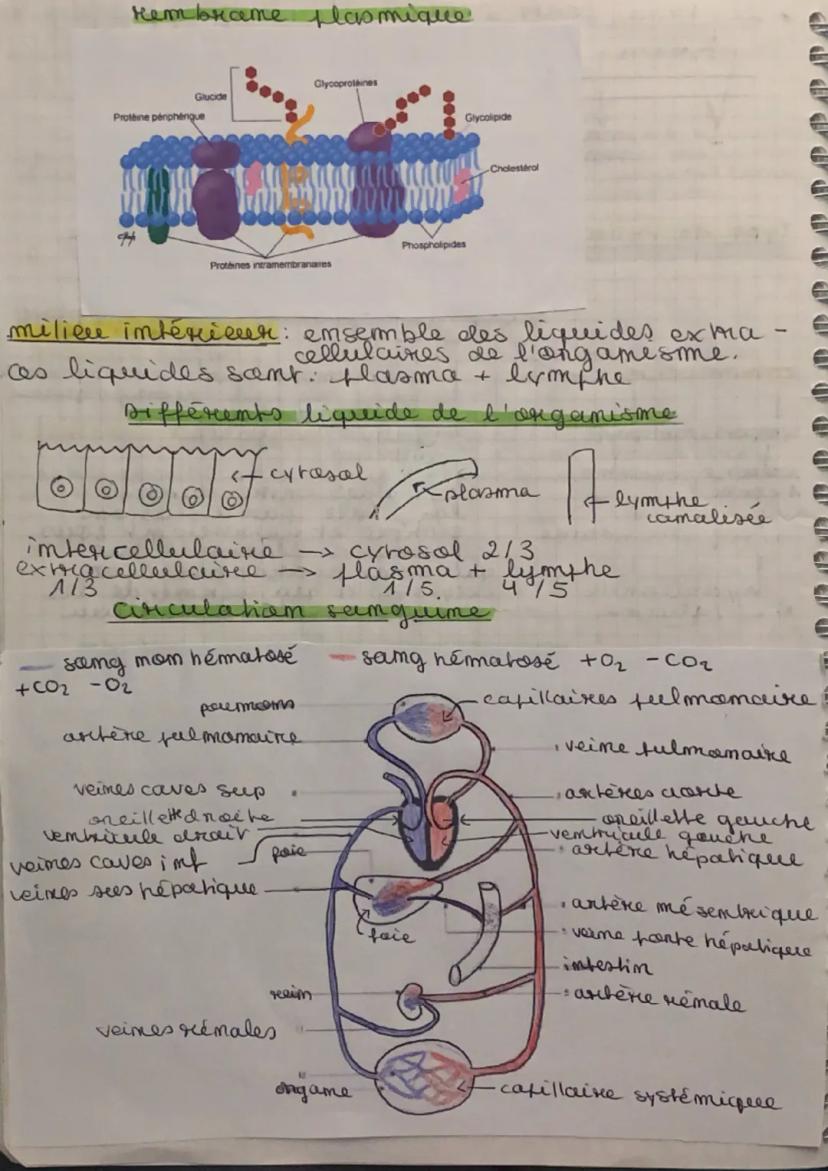 membrane plasmique
Glucide
Glycoprotéines
Protéine périphérique
Glycolipide
Cholestérol
Phospholipides
Protéines intramembranaires
milieu intérieur : ensemble des liquides extra-
cellulaires de l'organesme.
ces liquides sont : plasma + lymphe
Différents liquide de l'organisme
cytosol
plasma
lymphe
canalisée
intercellulaire → cytosol 2/3
extracellulaire → plasma + lymphe
1/3 1/5 4/5
circulation sanguine
sang non hématosé — sang hématosé +O₂ -CO₂
+CO₂ -O₂
poumons
capillaires pulmonaire
artère pulmonaire
veine pulmonaire
veines caves sup
artères aorte
oreillette droite
oreillette gauche
ventricule droit
ventricule gauche
veines caves inf
foie
artère hépatique
veines sus hépatique
artère mésentrique
foie
veine porte hépatique
intestin
rein
artère rénale
veines rénales
organe
capillaire systémique